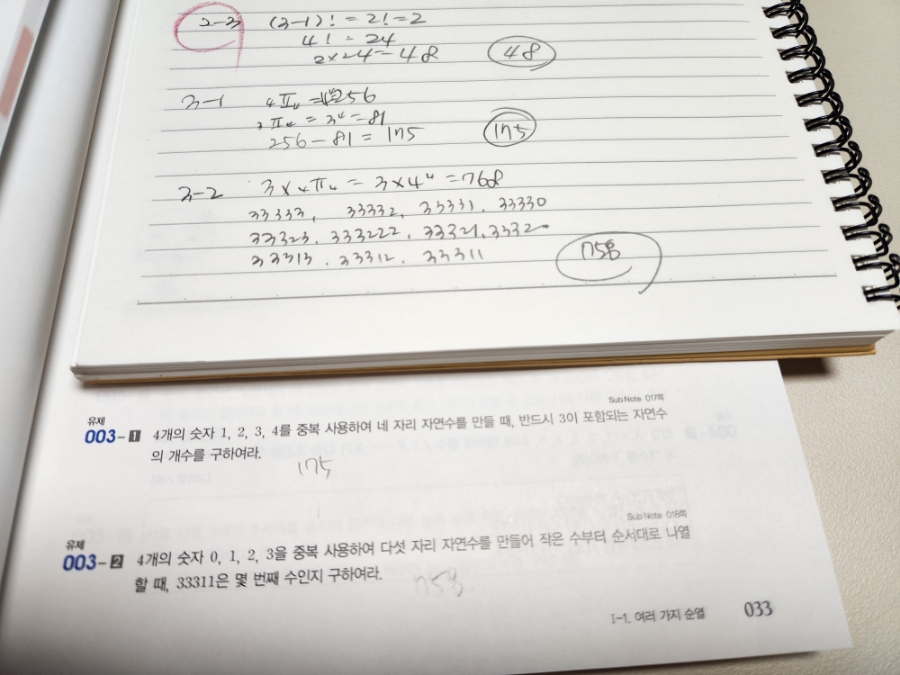 2-3 (3-1)! = 2! = 2
4! = 24
2×24 = 48 48
3-1 ₄Π₄ = 256
₃Π₄ = 3⁴ = 81
256 - 81 = 175 175
3-2 3 × ₄Π₄ = 3 × 4⁴ = 768
33333, 33332, 33331, 33330
33323, 333222, 33321, 33320
33313, 33312, 33311 758
SubNote 017쪽
유제
003-1 4개의 숫자 1, 2, 3, 4를 중복 사용하여 네 자리 자연수를 만들 때, 반드시 3이 포함되는 자연수
의 개수를 구하여라.
175
SubNote 018쪽
유제
003-2 4개의 숫자 0, 1, 2, 3을 중복 사용하여 다섯 자리 자연수를 만들어 작은 수부터 순서대로 나열
할 때, 33311은 몇 번째 수인지 구하여라.
758
I-1. 여러 가지 순열 033